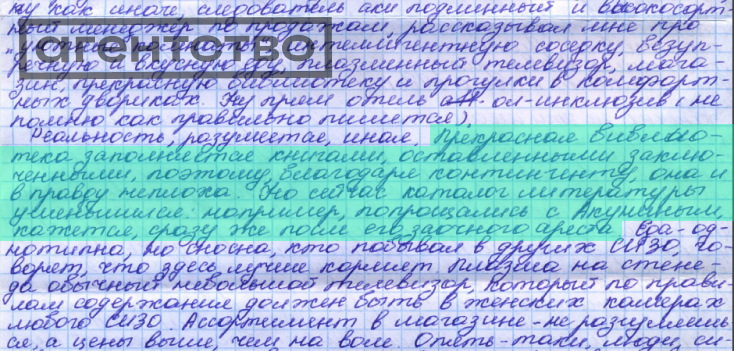 ну как иначе, следователь аки подменный и высокосорт-
ный менеджер по продажам, рассказывал мне про
агентство
"уютные комнаты", интеллигентную соседку, безуп-
речную и вкусную еду, плазменный телевизор, мага-
зин, прекрасную библиотеку и прогулки в комфорт-
ных двориках. Ну прям отель ол-инклюзив (не
помню как правильно пишется)
Реальность, разумеется, иная. Прекрасная библио-
тека заполняется книгами, оставленными заклю-
ченными, поэтому, благодаря контингенту она и
вправду неплоха. Но сейчас каталог литературы
уменьшился: например, попрощались с Акуниным
кажется, сразу же после его заочного ареста. Еда-од-
нотипна, но сносна, кто побывал в других СИЗО, го-
ворят, что здесь лучше кормят. Плазма на стене-
да обычный небольшой телевизор, который по прави-
лам содержания должен быть в женских камерах
любого СИЗО. Ассортимент в магазине-не разгуляешь
ся, а цены выше, чем на воле. Опять-таки, люди, си-